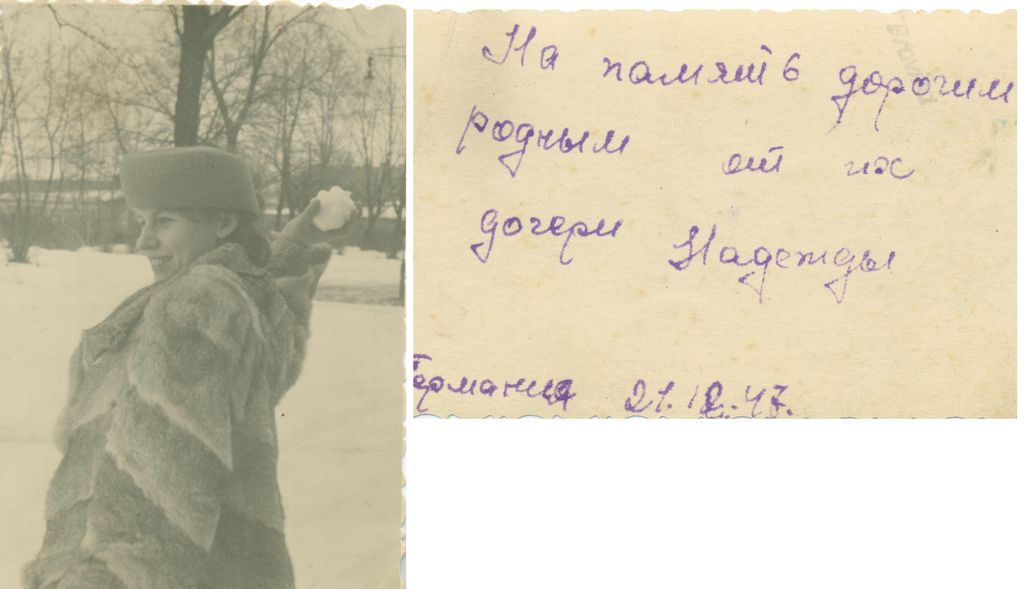 На память дорогим
родным от их
дочери Надежды
Германия 21.12.47.